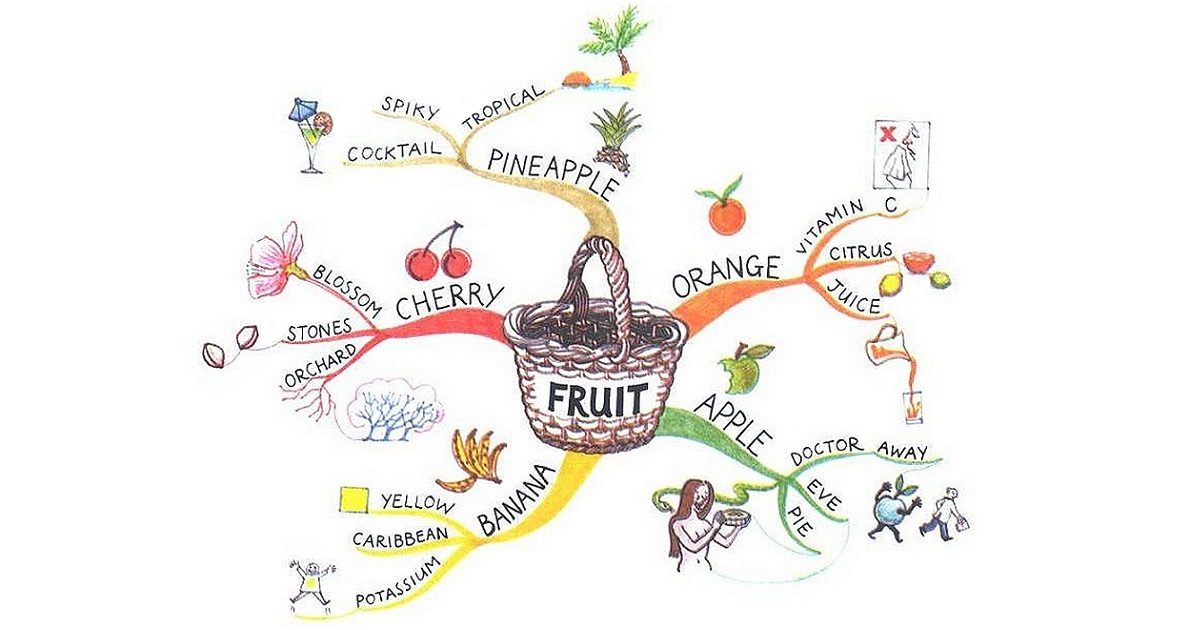 FRUIT
PINEAPPLE
SPIKY
TROPICAL
COCKTAIL
ORANGE
VITAMIN C
CITRUS
JUICE
X
APPLE
DOCTOR AWAY
EVE
PIE
BANANA
YELLOW
CARIBBEAN
POTASSIUM
CHERRY
BLOSSOM
STONES
ORCHARD